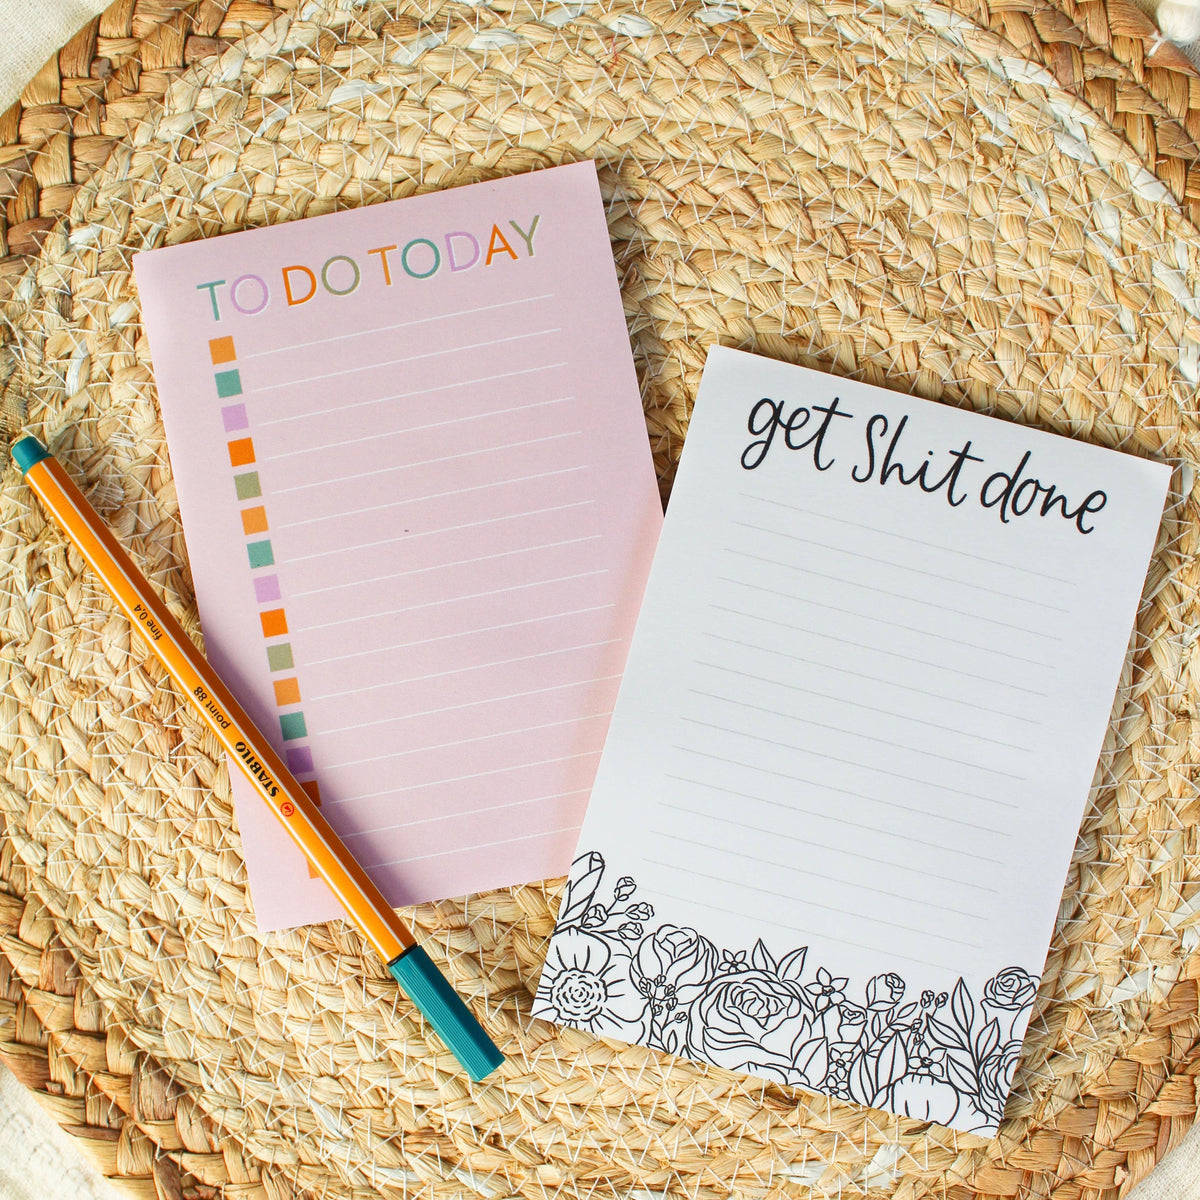 TO DO TODAY
get Shit done
STABILO point 88 fine 0,4